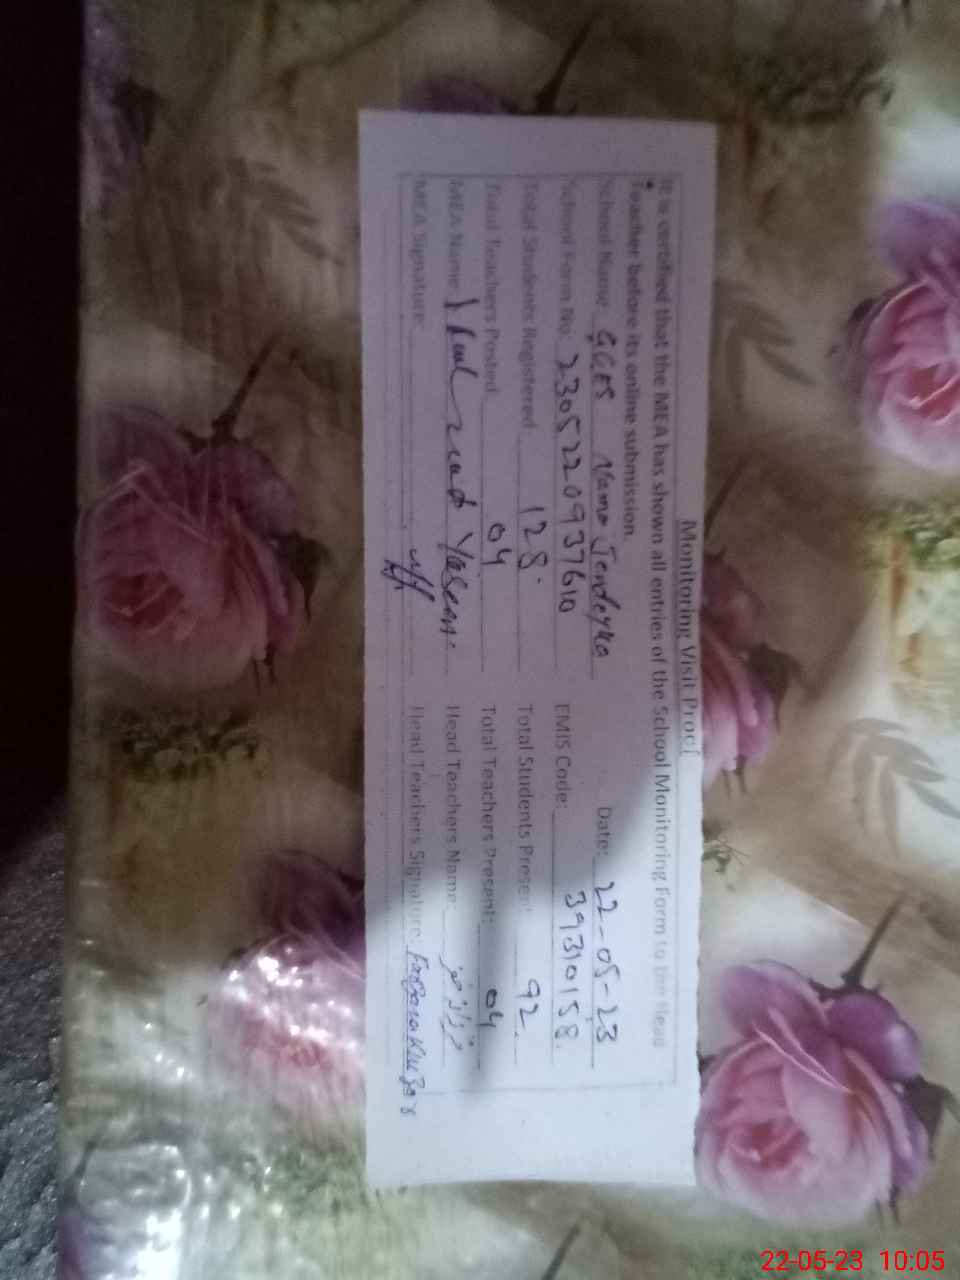 Monitoring Visit Proof
It is certified that the MEA has shown all entries of the School Monitoring Form to the Head
Teacher before its online submission.
School Name: Date: 22-05-23
School Form No: 2305220937610 EMIS Code: 39310158
Total Students Registered: 128 Total Students Present: 92
Total Teachers Posted: 04 Total Teachers Present: 04
MEA Name: Yaseen Head Teachers Name:
MEA Signature: Head Teachers Signature:
22-05-23 10:05